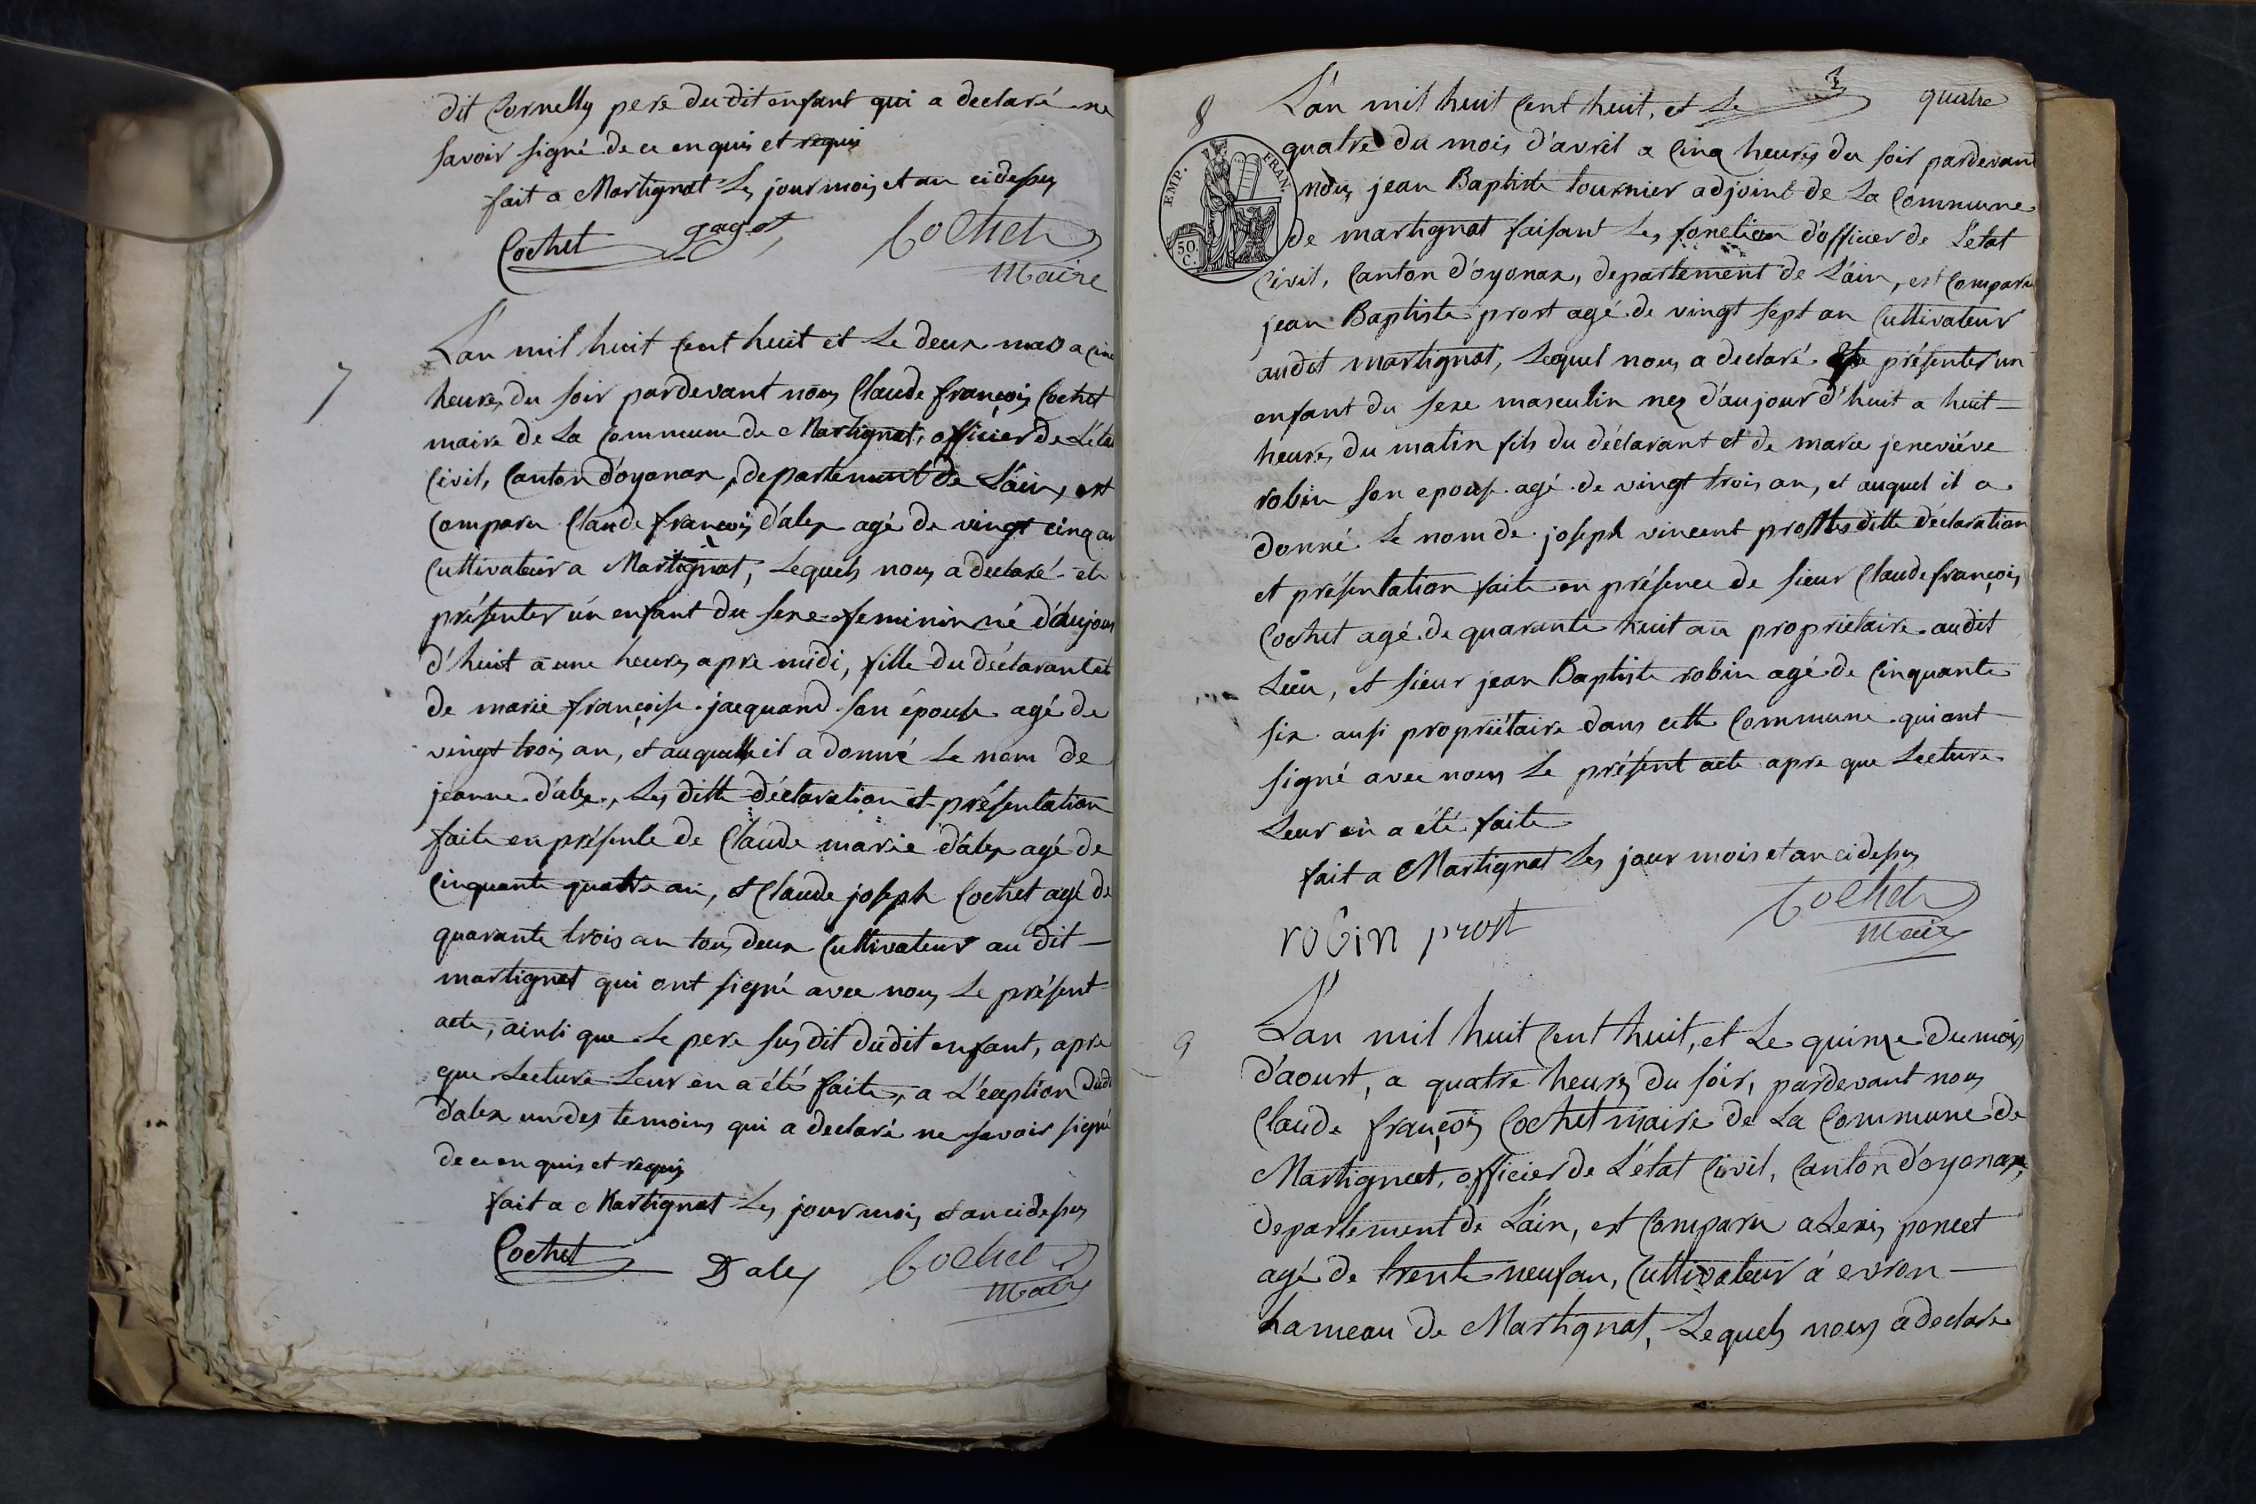 dit Cornelly pere dudit enfant qui a declaré ne
savoir signé de ce enquis et requis
fait a Martignat les jour mois et an cidessus
Cochet gagot Cochet
Maire
7
L'an mil huit cent huit et le deux mars a cinq
heures du soir pardevant nous Claude françois Cochet
maire de la commune de Martignat, officier de L'état
Civil, Canton d'oyonax, departement de L'ain, est
Comparu Claude françois d'alex agé de vingt cinq an
Cultivateur a Martignat, Lequels nous a declaré et
présenter un enfant du sexe feminin né d'aujour
d'huit a une heures apre midi, fille du déclarant et
de marie françoise jacquand son épouse agé de
vingt trois an, et auquelle il a donné le nom de
jeanne d'alex, Les ditte déclaration et présentation
faite en présente de Claude marie d'alex agé de
Cinquante quatre an, et Claude joseph Cochet agé de
quarante trois an tous deux Cultivateur au dit
martignat qui ont signé avec nous le présent
acte, ainsi que le pere susdit dudit enfant, apre
que Lecture leur en a été faite, a L'éxeption dudi
d'alex un des temoins qui a declaré ne savoir signé
de ce enquis et requis
fait a Martignat les jour mois et an cidessus
Cochet Dalex Cochet
Maire
8 L'an mil huit cent huit, et le quatre
quatre du mois d'avril a Cinq heures du soir pardevant
EMP. FRAN.
50 C.
nous jean Baptiste tournier adjoint de la Commune
de martignat faisant les fonction d'officier de L'état
Civil, Canton d'oyonax, departement de L'ain, est Comparu
jean Baptiste prost agé de vingt sept an Cultivateur
audit martignat, Lequel nous a declaré présenter un
enfant du sexe masculin nez d'aujour d'huit a huit
heures du matin fils du déclarant et de marie jeneviéve
robin son epouse agé de vingt trois an, et auquel il a
donné le nom de joseph vincent prost les ditte déclaration
et présentation faite en présence de sieur Claude françois
Cochet agé de quarante huit an propriétaire audit
Lieu, et sieur jean Baptiste robin agé de Cinquante
six aussi propriétaire dans cette Commune qui ont
signé avec nous le présent acte apre que Lecture
Leur en a été faite
fait a Martignat les jour mois et an cidessus
robin prost Cochet
Maire
9
L'an mil huit cent huit, et le quinze du mois
d'aoust, a quatre heures du soir, pardevant nous
Claude françois Cochet maire de la Commune de
Martignat, officier de L'état Civil, Canton d'oyonax,
departement de L'ain, est Comparu alexis poncet
agé de trente neuf an, Cultivateur á evron
hameau de Martignat, Lequels nous a declaré